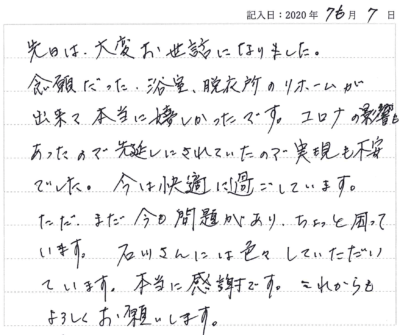 記入日：2020年 7月 7日
先日は、大変お世話になりました。
念願だった、浴室、脱衣所のリホームが
出来て本当に嬉しかったです。コロナの影響も
あったので先延しにされていたので実現も不安
でした。今は快適に過ごしています。
ただ、まだ今も問題があり、ちょっと困って
います。石川さんには色々していただい
ています。本当に感謝です。これからも
よろしくお願いします。